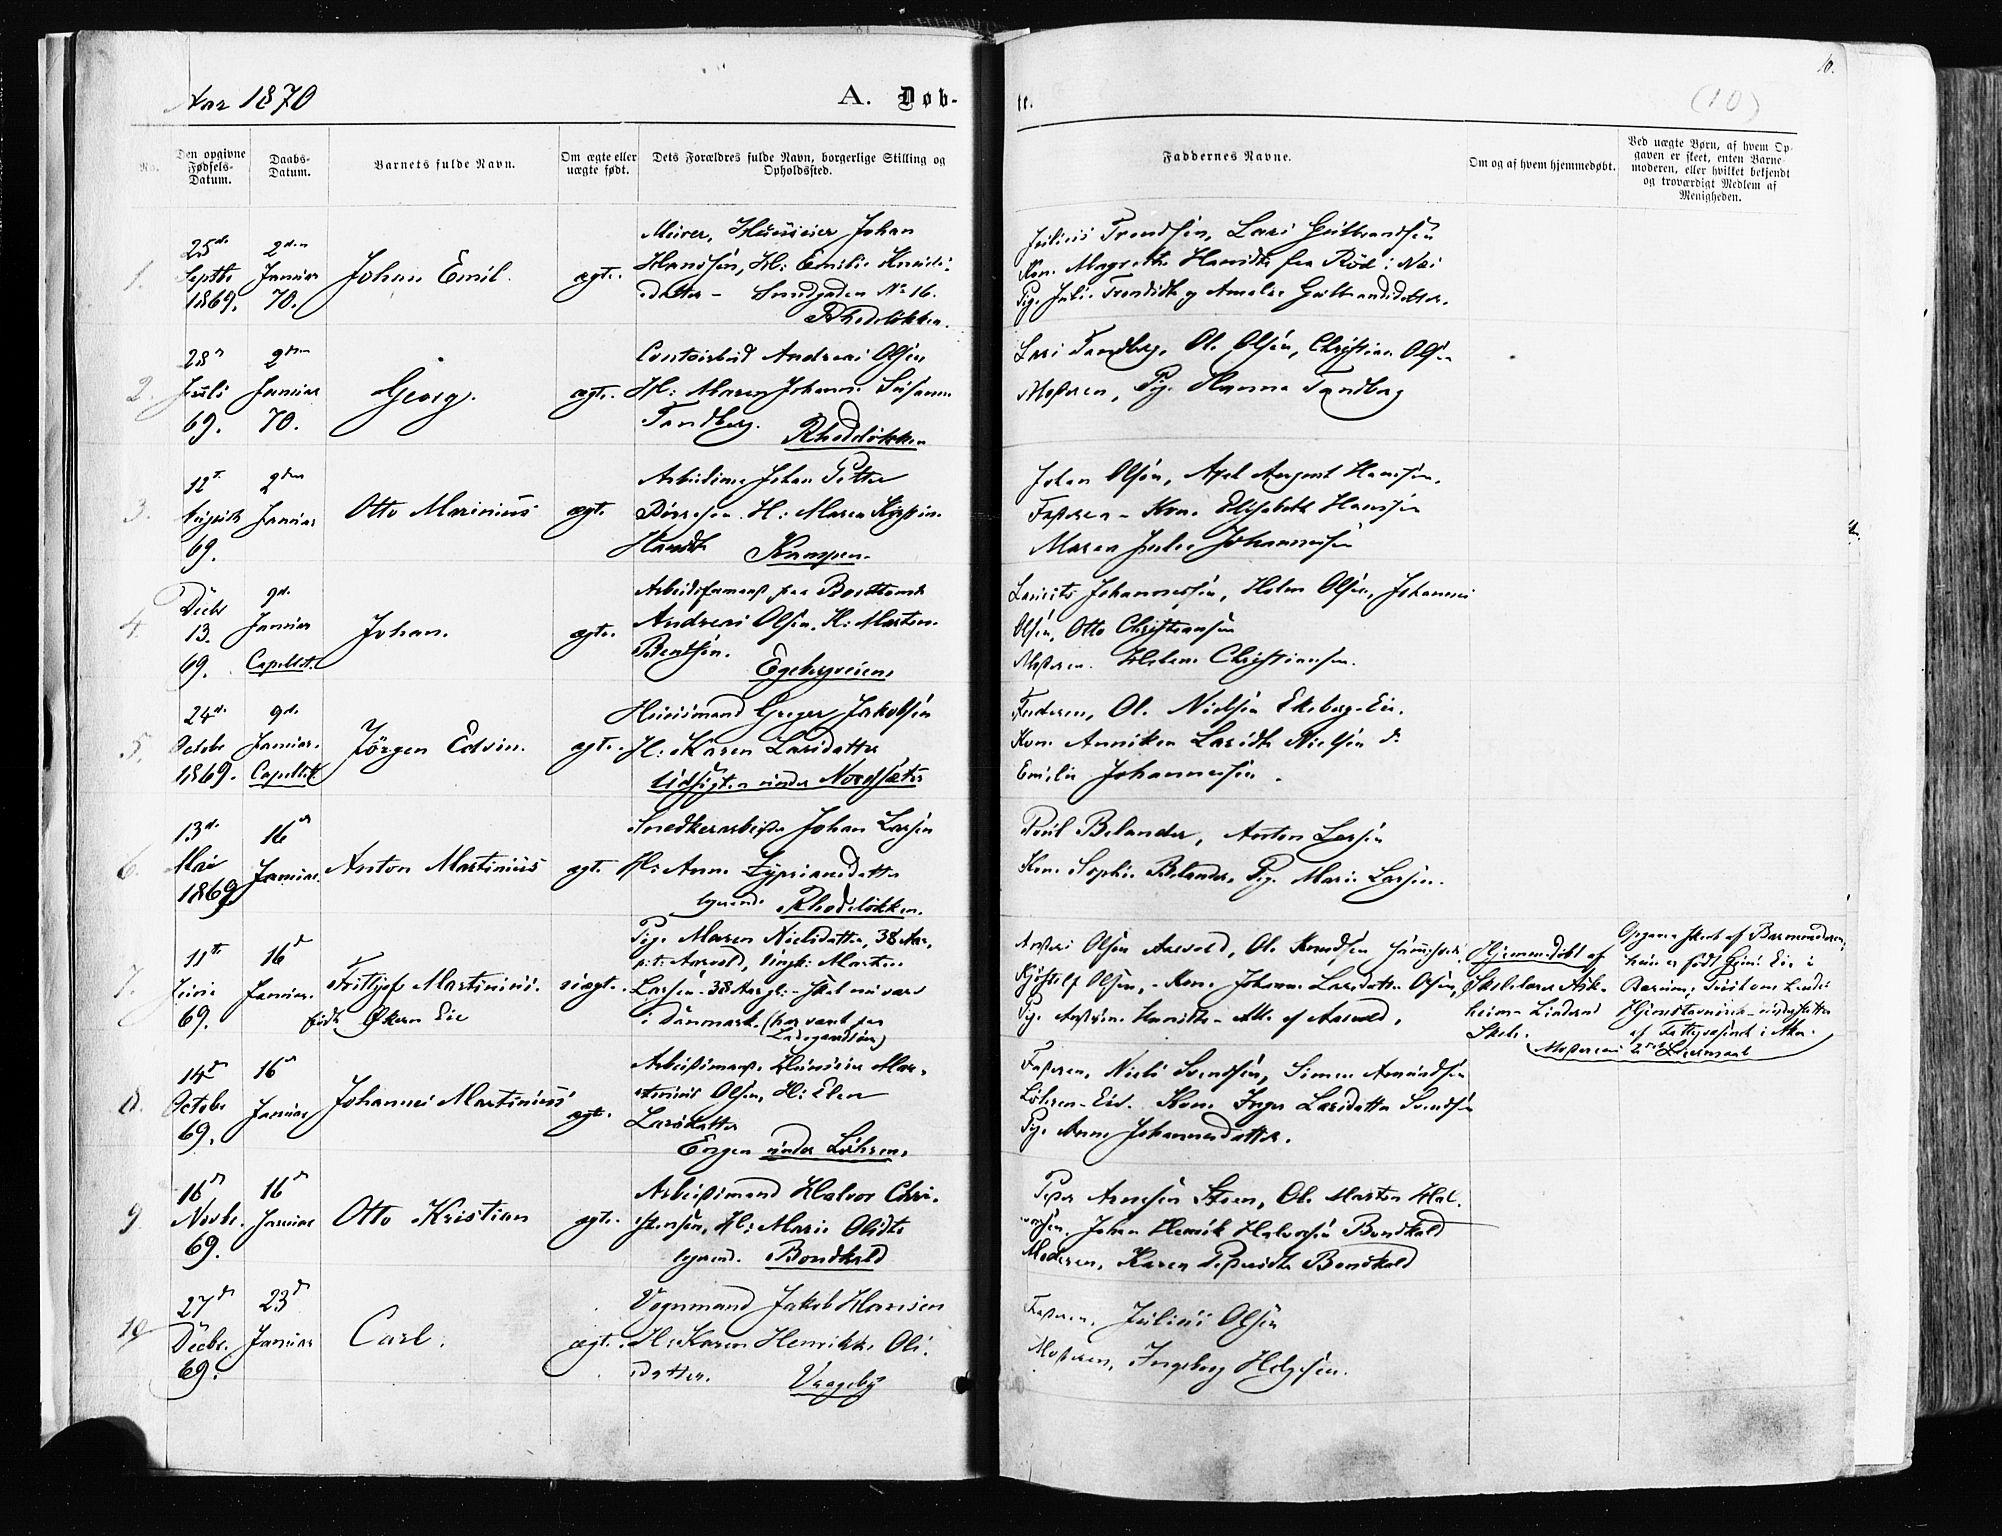 10.
Aar 1870
A. Døb-
te.
(10)
No.
Den opgivne Fødsels-Datum.
Daabs-Datum.
Barnets fulde Navn.
Om ægte eller uægte født.
Dets Forældres fulde Navn, borgerlige Stilling og Opholdssted.
Faddernes Navne.
Om og af hvem hjemmedøbt.
Ved uægte Børn, af hvem Op-
gaven er skeet, enten Barne-
moderen, eller hvilket bekjendt
og troværdigt Medlem af
Menigheden.
1.
25de Septbr 1869.
2den Januar 70.
Johan Emil.
ægte.
Murer, Huuseier Johan
Hanssen, H: Emilie Knuds-
datter - Smedgaden No 16.
Rhodeløkken.
Julius Trondsen, Lars Gulbrandsen
Kone Magrethe Hansdtr fra Röd i Næs
Pige Julie Trondsdtr og Amalie Gulbrandsdatter.
2.
28 Juli 69.
2den Januar 70.
Georg.
ægte.
Contoirbud Andreas Olsen
H: Maren Johanne Susanne
Tandberg. Rhodeløkken
Lars Tandberg, Ole Olsen, Christian Olsen
Moderen, Pige Hanna Tandberg
3.
12t August 69.
2den Januar
Otto Marinius
ægte.
Arbeidsmand Johan Petter
H: Maren
Kampen.
Johan Olsen, Axel August Hanssen,
Faderen - Kone Elisabeth Hanssen
Maren Julie Johannesen
4.
Decbr 13. 69.
9de Januar Capellet.
Johan.
ægte.
Andreas Olsen, H: Martine
Bentsen.
Egebergveien.
Laurits Johannessen, Holm Olsen, Johannes
Olsen, Otto Christiansen
Moderen. Helene Christiansen.
5.
24de Octobr 1869.
9de Januar. Capellet
Jørgen Edvin.
ægte.
Huusmand Greger Jakobsen
H: Karen Larsdatter
Udsigten under Nordsæter
Faderen, Ole Nielsen Ekeberg-Eie.
Kone Anniken Larsdtr Nielsen do
Emilie Johannesen.
6.
13de Mai 1869
16 Januar.
Anton Martinius
ægte.
Snedkerarbeider Johan Larsen
H: Anne Zypriansdatter
logerende Rhodeløkken.
Poul Belander, Anton Larsen
Kone Sophie Belander, Pige Marie Larsen.
7.
11te Junie 69.
16 Januar.
Frithjof Martinius.
født Økern Eie
uægte.
Pige Maren Nielsdatter, 38 Aar,
Aarvold, Ungk: Martin
Larsen - 38 Aar gl: - skal nu være
i Danmark. (har været paa
Ladegaardsøen)
Olsen Aarvold, Ole Knudsen
Olsen, - Kone Johanne Larsdatter Olsen,
Alle af Aarvold.
Hjemmedøbt af
Skolelærer Ask-
heim - Linderud
Skole.
Opgaven skeet af Barnemoderen,
Moderens 2det Leiermaal
8.
14 Octobr 69.
16 Januar
Johannes Martinius
ægte.
Arbeidsmand. Huuseier Mar-
tinius Olsen, H: Elen
Larsdatter
Engen under Løhren.
Faderen, Niels Svendsen, Simen Amundsen
Løhren-Eie. Kone Inger Larsdatter Svendsen
Pige Anne Johannesdatter.
9
16 Novbr. 69.
16 Januar
Otto Kristian
ægte.
Arbeidsmand Halvor Chri-
stensen, H: Marie Olsdtr
logerende. Bondkald
Peder Arnesen Steen, Ole Martin Hal-
vorsen. Johan Henrik Halvorsen Bondkald
Moderen, Karen Bondkald
10
27 Decbr. 69.
23 Januar
Carl.
ægte.
Vognmand Jakob Hansen
H: Karen Henrikke Ols-
datter. Vaageby
Faderen, Julius Olsen
Moderen, Ingeborg Helgesen.